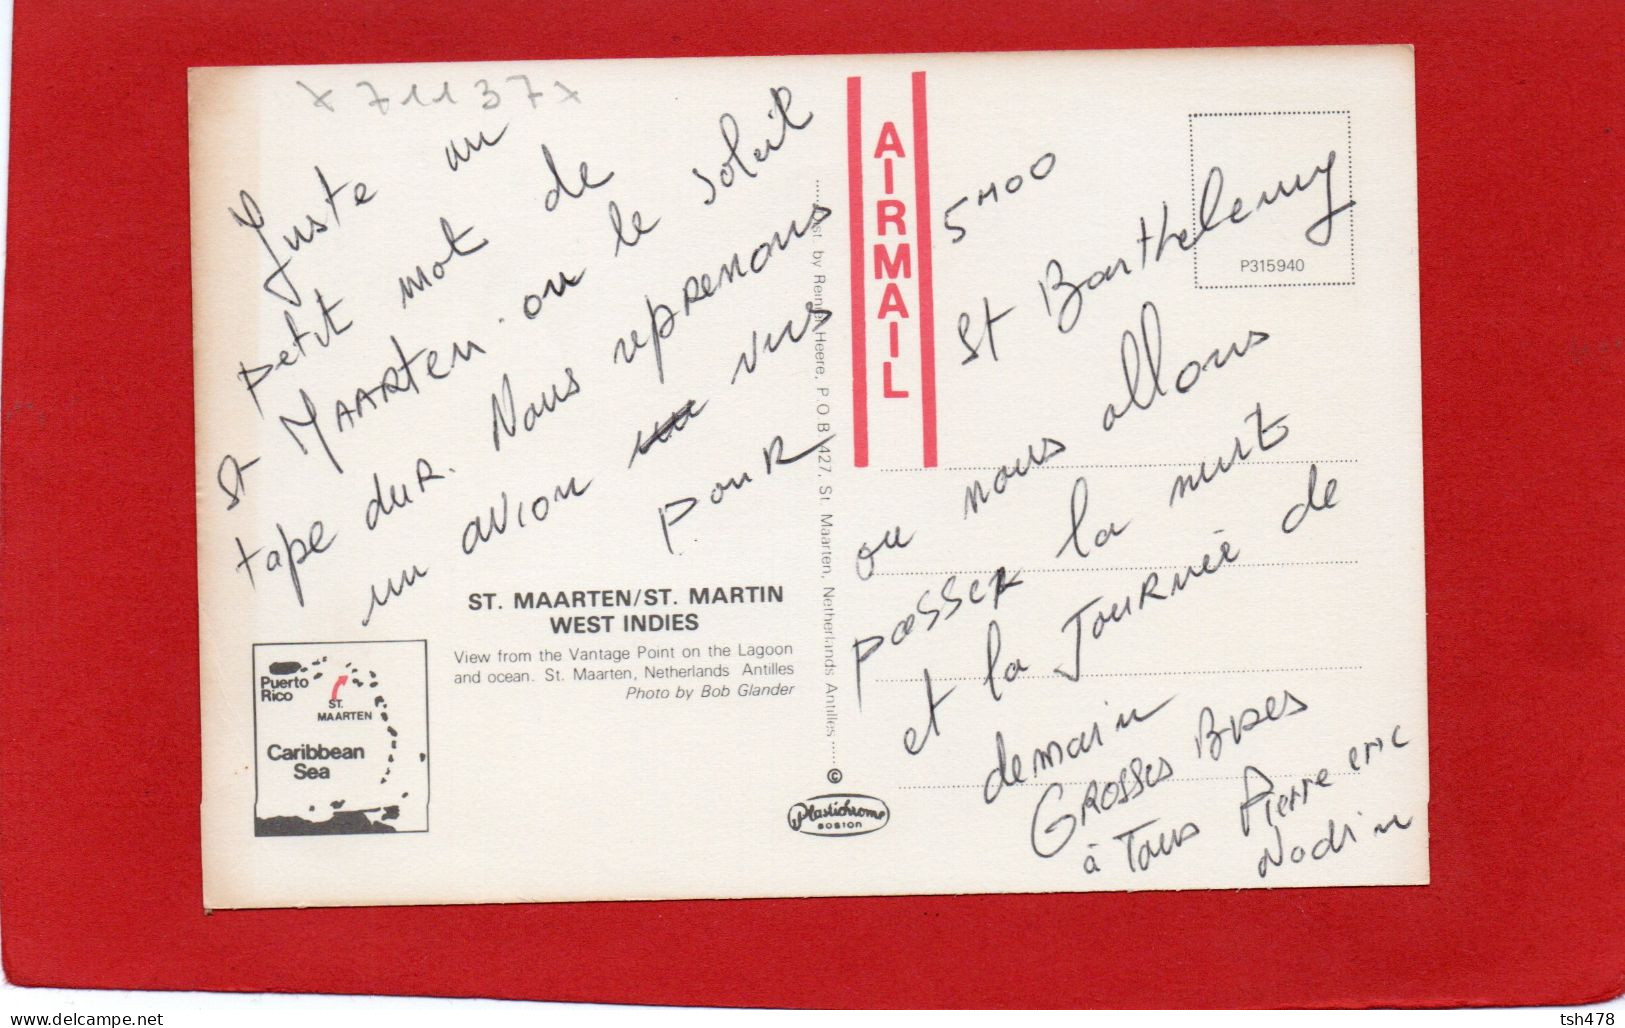 x 711 37 x
Juste un
petit mot de
St MAARTEN. ou le soleil
tape duR. Nous reprenons
un avion vers
pour
ST. MAARTEN/ST. MARTIN
WEST INDIES
View from the Vantage Point on the Lagoon
and ocean. St. Maarten, Netherlands Antilles
Photo by Bob Glander
Puerto
Rico
ST.
MAARTEN
Caribbean
Sea
Dist. by Reinier Heere, P.O.B. 427, St. Maarten, Netherlands Antilles
©
Plastichrome
BOSTON
AIRMAIL
P315940
5H00
St Barthelemy
ou nous allons
passer la nuit
et la Journée de
demain
GROSSES Bises
à Tous Pierre eric
Nadine
www.delcampe.net
tsh478